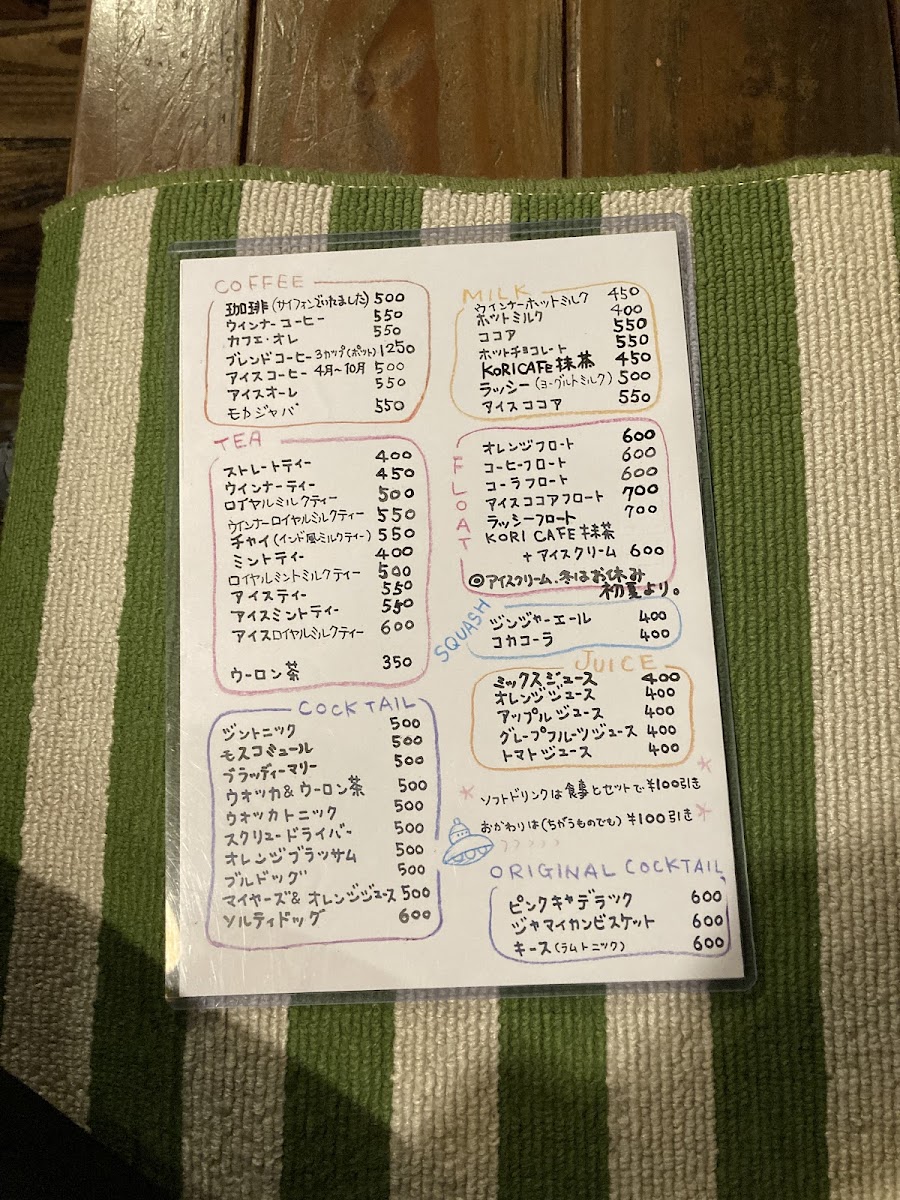 COFFEE
珈琲(サイフォンでいれました) 500
ウインナーコーヒー 550
カフェ・オレ 550
ブレンドコーヒー3カップ(ポット) 1250
アイスコーヒー 4月~10月 500
アイスオーレ 550
モカジャバ 550
TEA
ストレートティー 400
ウインナーティー 450
ロイヤルミルクティー 500
ウインナーロイヤルミルクティー 550
チャイ(インド風ミルクティー) 550
ミントティー 400
ロイヤルミントミルクティー 500
アイスティー 550
アイスミントティー 550
アイスロイヤルミルクティー 600
ウーロン茶 350
COCKTAIL
ジントニック 500
モスコミュール 500
ブラッディーマリー 500
ウオッカ&ウーロン茶 500
ウオッカトニック 500
スクリュードライバー 500
オレンジブラッサム 500
ブルドッグ 500
マイヤーズ&オレンジジュース 500
ソルティドッグ 600
MILK
ウインナーホットミルク 450
ホットミルク 400
ココア 550
ホットチョコレート 550
KORICAFE抹茶 450
ラッシー(ヨーグルトミルク) 500
アイスココア 550
FLOAT
オレンジフロート 600
コーヒーフロート 600
コーラフロート 600
アイスココアフロート 700
ラッシーフロート 700
KORI CAFE抹茶
+アイスクリーム 600
◎アイスクリーム、冬はお休み
初夏より。
SQUASH
ジンジャーエール 400
コカコーラ 400
JUICE
ミックスジュース 400
オレンジジュース 400
アップルジュース 400
グレープフルーツジュース 400
トマトジュース 400
ソフトドリンクは食事とセットで¥100引き
おかわりは(ちがうものでも)¥100引き
ORIGINAL COCKTAIL
ピンクキャデラック 600
ジャマイカンビスケット 600
キース(ラムトニック) 600